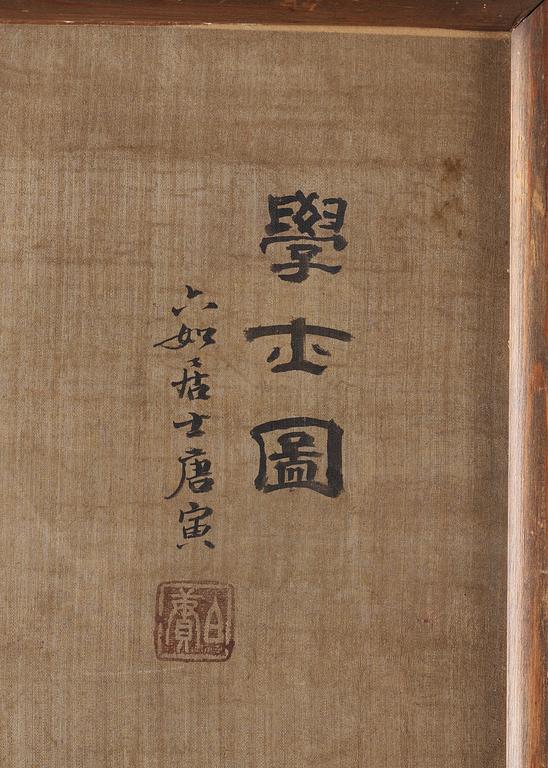 學士圖
六如居士唐寅